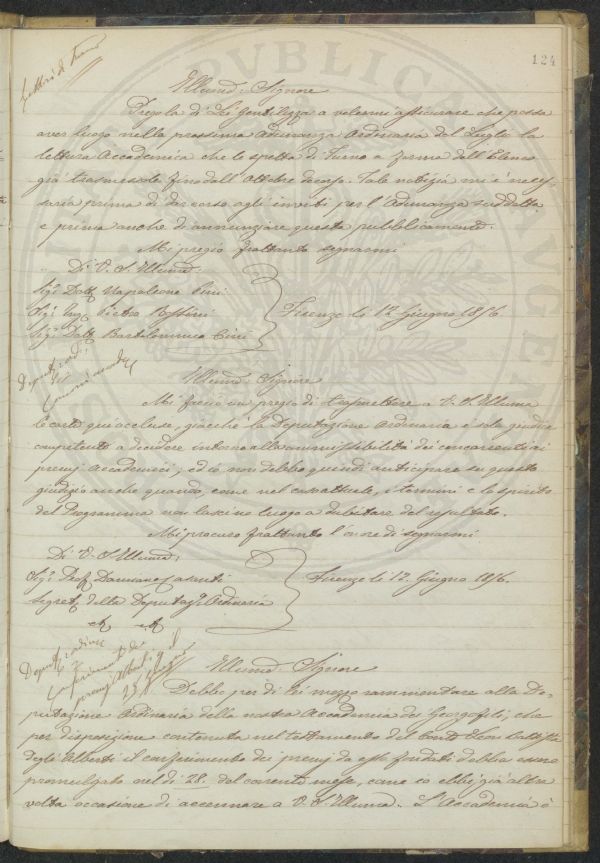 124
Lettori di Turno
Illumo: Signore
Prego la di Lei Gentilezza a volermi assicurare che possa
aver luogo nella prossima Adunanza Ordinaria del Luglio la
lettura Accademica che le spetta di Turno a forma dell'Elenco
già trasmessole fino dall'Ottobre decorso. Tale notizia mi è neces-
saria prima di dar corso agli inviti per l'Adunanza suddetta
e prima anche di annunziare questa pubblicamente.
Mi pregio frattanto segnarmi
Di V. S. Illuma:
Sigr: Dottr Napoleone Pini
Sigr: Ingr Pietro Rossini
Sigr: Dottr Bartolommeo Cini
Firenze li 12 Giugno 1856.
Deputaz. ordi:
Illumo: Signore
Mi faccio un pregio di trasmettere a V. S. Illuma
le carte qui accluse, giacchè la Deputazione Ordinaria è sola giudice
competente a decidere intorno alla ammissibilità dei concorrenti ai
premj Accademici; ed io non debbo quindi anticipare su questo
giudizio anche quando, come nel caso attuale, i termini e lo spirito
del Programma non lascino luogo a dubitare del resultato.
Mi procuro frattanto l'onore di segnarmi
Di V. S. Illuma:
Sigr: Prof. Damiano Casanti
Segret. della Deputaze. Ordinaria
Firenze li 12. Giugno 1856.
Deputaz. ordinar
conferimento dei
premj Alberti il
28 Giugno
Illumo: Signore
Debbo per di Lei mezzo rammentare alla De-
putazione Ordinaria della nostra Accademia dei Georgofili, che
per disposizione contenuta nel testamento del Conte Leon Battista
Degli Alberti il conferimento dei premj da esso fondati debba essere
promulgato nel dì 28. del corrente mese, come io ebbi già altra
volta occasione di accennare a V. S. Illuma. L'Accademia è